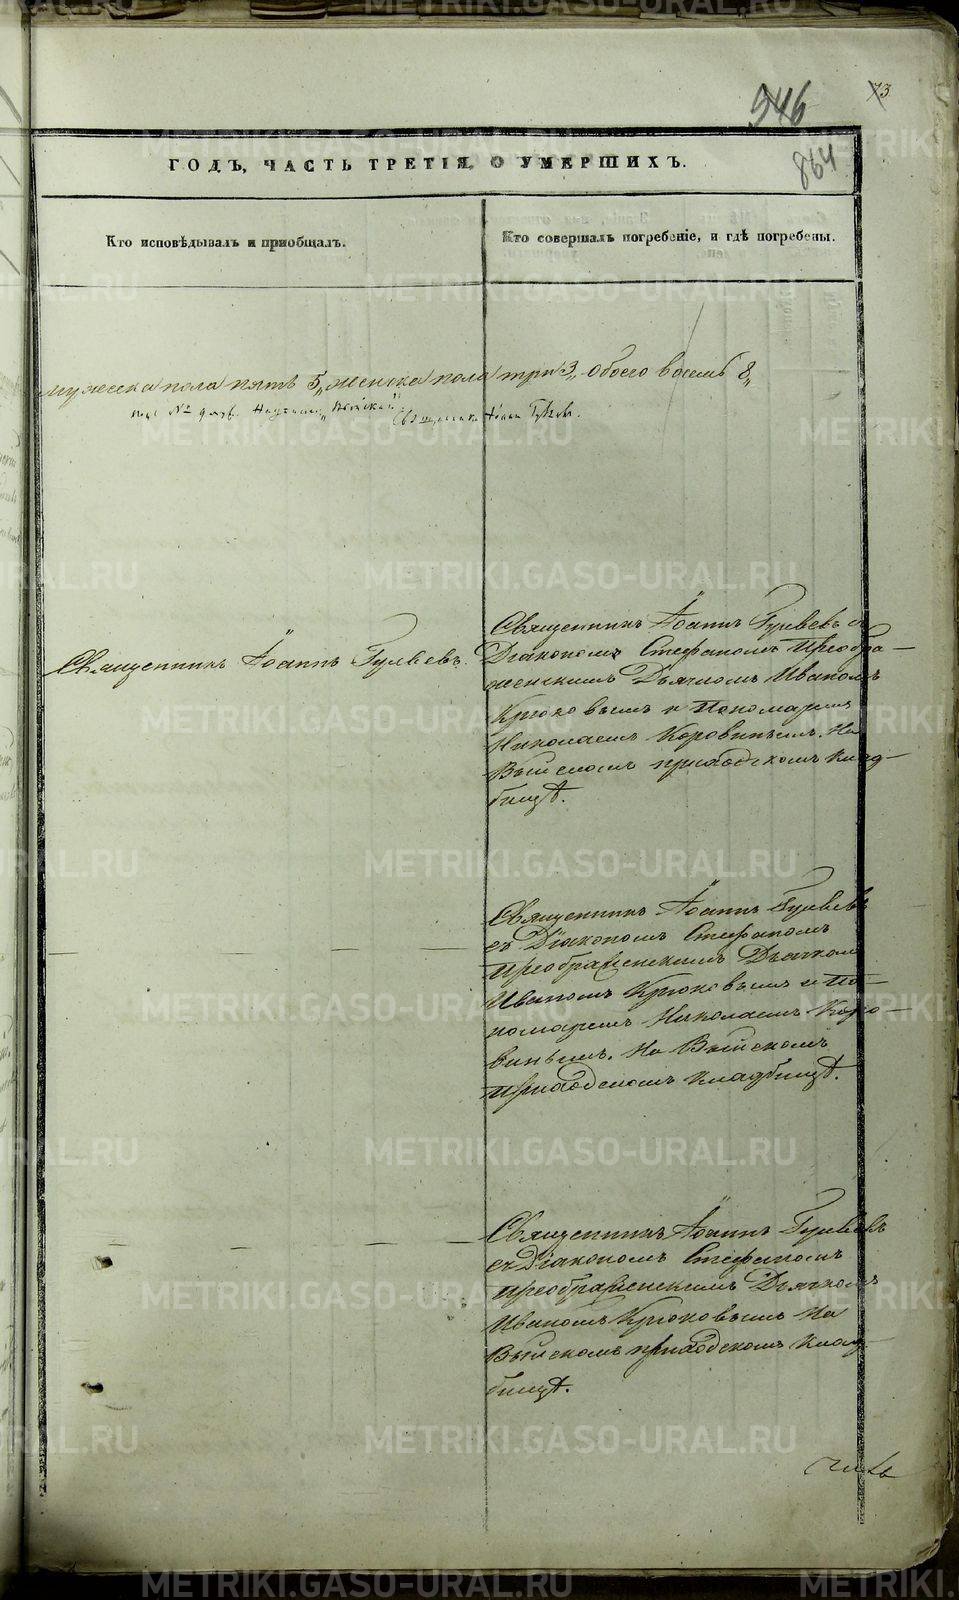 946
73
864
ГОДЪ, ЧАСТЬ ТРЕТІЯ, О УМЕРШИХЪ.
Кто исповѣдывалъ и пріобщалъ.
Кто совершалъ погребеніе, и гдѣ погребены.
мужеска пола пять 5, женска пола три 3, обоего восемь 8,
Священникъ Іоаннъ
Священникъ Іоаннъ Гуляевъ.
Священникъ Іоаннъ Гуляевъ съ
Діакономъ Стефаномъ Преобра-
женскимъ Дьячкомъ Иваномъ
Крюковымъ и Пономаремъ
Николаемъ Коровинымъ. На
Выйскомъ приходскомъ клад-
бищѣ.
Священникъ Іоаннъ Гуляевъ
съ Діакономъ Стефаномъ
Преображенскимъ Дьячкомъ
Иваномъ Крюковымъ и По-
номаремъ Николаемъ Коро-
винымъ. На Выйскомъ
Приходскомъ кладбищѣ.
Священникъ Іоаннъ Гуляевъ
съ Діакономъ Стефаномъ
Преображенскимъ Дьячкомъ
Иваномъ Крюковымъ На
Выйскомъ приходскомъ клад-
бищѣ.
METRIKI.GASO-URAL.RU